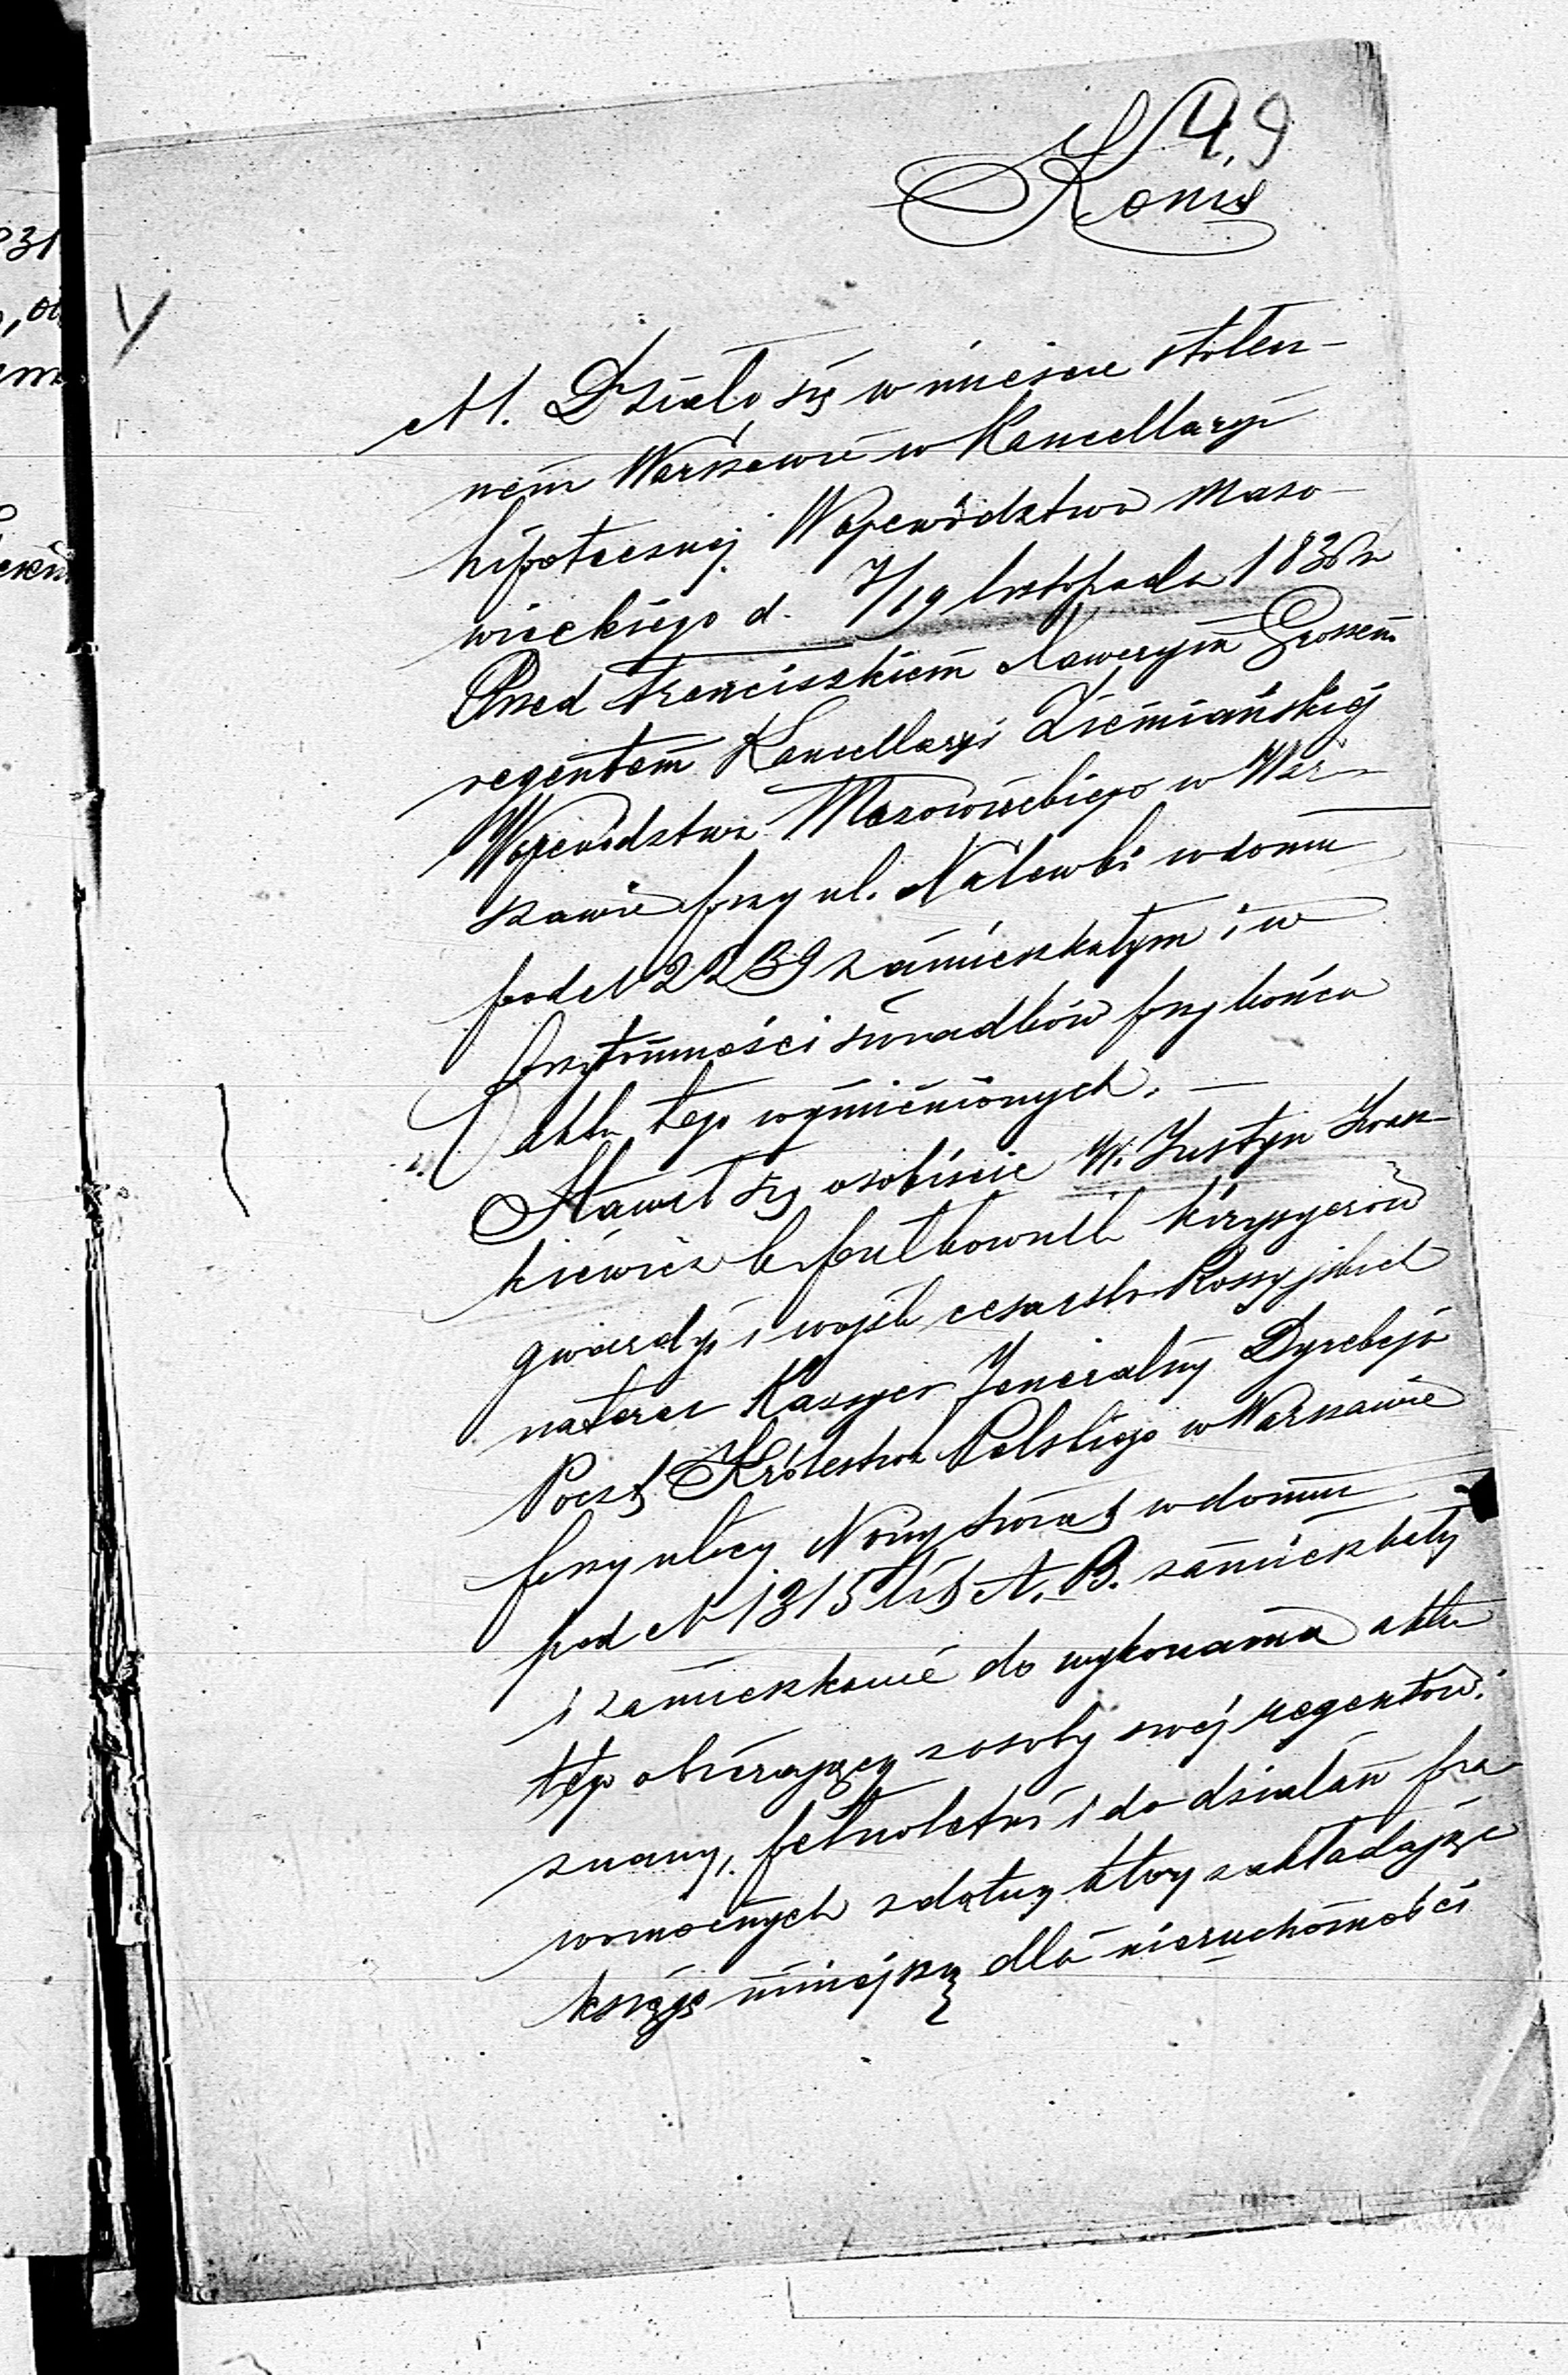 49
Konis
N 1. Działo się w mieście stołecz-
nem Warszawie w Kancellaryi
hipotecznej Województwa Mazo-
wieckiego d. 7/19 listopada 183
Przed Franciszkiem Xawerym Grossem
regentem Kancellaryi Ziemiańskiej
Województwa Mazowieckiego w War-
szawie przy ul. Nalewki w domu
pod N 2239 zamieszkałym i w
przytomności świadków przy końcu
aktu tego wymienionych. —
Stawił się osobiście W. Justyn Iwasz-
kiewicz b. pułkownik kirysyerów
gwardyi wojsk cesarsko Rossyjskich
na teraz Kassyer Jeneralny Dyrekcji
Poczt Królestwa Polskiego w Warszawie
przy ulicy Nowy Świat w domu
pod N 1315 lit A. B. zamieszkały
i zamieszkanie do wykonania aktu
tego obierający z osoby swej regentowi
znany, pełnoletni i do działań pra-
womocnych zdatny który zakładając
księgę niniejszą dla nieruchomości
831
, ob